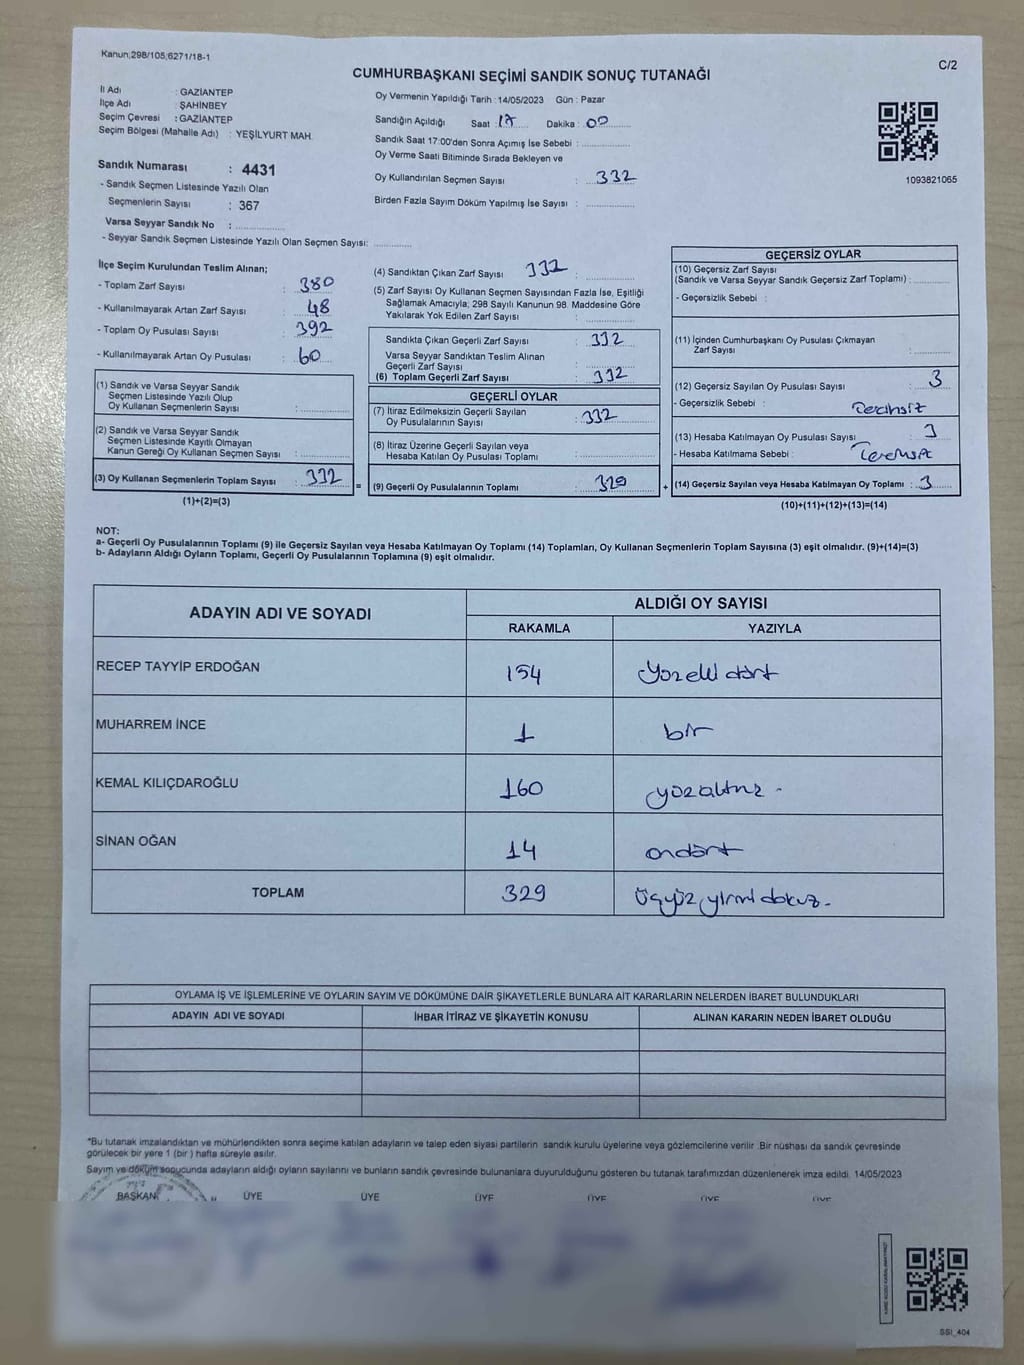 Kanun;298/105;6271/18-1
C/2
CUMHURBAŞKANI SEÇİMİ SANDIK SONUÇ TUTANAĞI
İl Adı : GAZİANTEP
İlçe Adı : ŞAHİNBEY
Seçim Çevresi : GAZİANTEP
Seçim Bölgesi (Mahalle Adı) : YEŞİLYURT MAH.
Sandık Numarası : 4431
- Sandık Seçmen Listesinde Yazılı Olan
Seçmenlerin Sayısı : 367
Varsa Seyyar Sandık No :
- Seyyar Sandık Seçmen Listesinde Yazılı Olan Seçmen Sayısı:
Oy Vermenin Yapıldığı Tarih : 14/05/2023 Gün : Pazar
Sandığın Açıldığı Saat : 17 Dakika : 00
Sandık Saat 17:00'den Sonra Açımış İse Sebebi :
Oy Verme Saati Bitiminde Sırada Bekleyen ve
Oy Kullandırılan Seçmen Sayısı : 332
Birden Fazla Sayım Döküm Yapılmış İse Sayısı :
1093821065
İlçe Seçim Kurulundan Teslim Alınan;
- Toplam Zarf Sayısı : 380
- Kullanılmayarak Artan Zarf Sayısı : 48
- Toplam Oy Pusulası Sayısı : 392
- Kullanılmayarak Artan Oy Pusulası : 60
(1) Sandık ve Varsa Seyyar Sandık
Seçmen Listesinde Yazılı Olup
Oy Kullanan Seçmenlerin Sayısı :
(2) Sandık ve Varsa Seyyar Sandık
Seçmen Listesinde Kayıtlı Olmayan
Kanun Gereği Oy Kullanan Seçmen Sayısı :
(3) Oy Kullanan Seçmenlerin Toplam Sayısı : 332
(1)+(2)=(3)
(4) Sandıktan Çıkan Zarf Sayısı 332 :
(5) Zarf Sayısı Oy Kullanan Seçmen Sayısından Fazla İse, Eşitliği
Sağlamak Amacıyla; 298 Sayılı Kanunun 98. Maddesine Göre
Yakılarak Yok Edilen Zarf Sayısı :
Sandıkta Çıkan Geçerli Zarf Sayısı : 332
Varsa Seyyar Sandıktan Teslim Alınan
Geçerli Zarf Sayısı :
(6) Toplam Geçerli Zarf Sayısı : 332
GEÇERLİ OYLAR
(7) İtiraz Edilmeksizin Geçerli Sayılan
Oy Pusulalarının Sayısı : 332
(8) İtiraz Üzerine Geçerli Sayılan veya
Hesaba Katılan Oy Pusulası Toplamı :
= (9) Geçerli Oy Pusulalarının Toplamı : 329 +
GEÇERSİZ OYLAR
(10) Geçersiz Zarf Sayısı
(Sandık ve Varsa Seyyar Sandık Geçersiz Zarf Toplamı) :
- Geçersizlik Sebebi :
(11) İçinden Cumhurbaşkanı Oy Pusulası Çıkmayan
Zarf Sayısı :
(12) Geçersiz Sayılan Oy Pusulası Sayısı : 3
- Geçersizlik Sebebi :
(13) Hesaba Katılmayan Oy Pusulası Sayısı : 3
- Hesaba Katılmama Sebebi :
(14) Geçersiz Sayılan veya Hesaba Katılmayan Oy Toplamı : 3
(10)+(11)+(12)+(13)=(14)
NOT:
a- Geçerli Oy Pusulalarının Toplamı (9) ile Geçersiz Sayılan veya Hesaba Katılmayan Oy Toplamı (14) Toplamları, Oy Kullanan Seçmenlerin Toplam Sayısına (3) eşit olmalıdır. (9)+(14)=(3)
b- Adayların Aldığı Oyların Toplamı, Geçerli Oy Pusulalarının Toplamına (9) eşit olmalıdır.
ADAYIN ADI VE SOYADI ALDIĞI OY SAYISI
RAKAMLA YAZIYLA
RECEP TAYYİP ERDOĞAN 154 Yüzelli dört
MUHARREM İNCE 1 bir
KEMAL KILIÇDAROĞLU 160 yüzaltmış
SİNAN OĞAN 14 ondört
TOPLAM 329 üçyüz yirmi dokuz.
OYLAMA İŞ VE İŞLEMLERİNE VE OYLARIN SAYIM VE DÖKÜMÜNE DAİR ŞİKAYETLERLE BUNLARA AİT KARARLARIN NELERDEN İBARET BULUNDUKLARI
ADAYIN ADI VE SOYADI İHBAR İTİRAZ VE ŞİKAYETİN KONUSU ALINAN KARARIN NEDEN İBARET OLDUĞU
*Bu tutanak imzalandıktan ve mühürlendikten sonra seçime katılan adayların ve talep eden siyasi partilerin sandık kurulu üyelerine veya gözlemcilerine verilir .Bir nüshası da sandık çevresinde
görülecek bir yere 1 (bir ) hafta süreyle asılır.
Sayım ve döküm sonucunda adayların aldığı oyların sayılarını ve bunların sandık çevresinde bulunanlara duyurulduğunu gösteren bu tutanak tarafımızdan düzenlenerek imza edildi. 14/05/2023
BAŞKAN ÜYE ÜYE ÜYE ÜYE ÜYE ÜYE
SSI_404